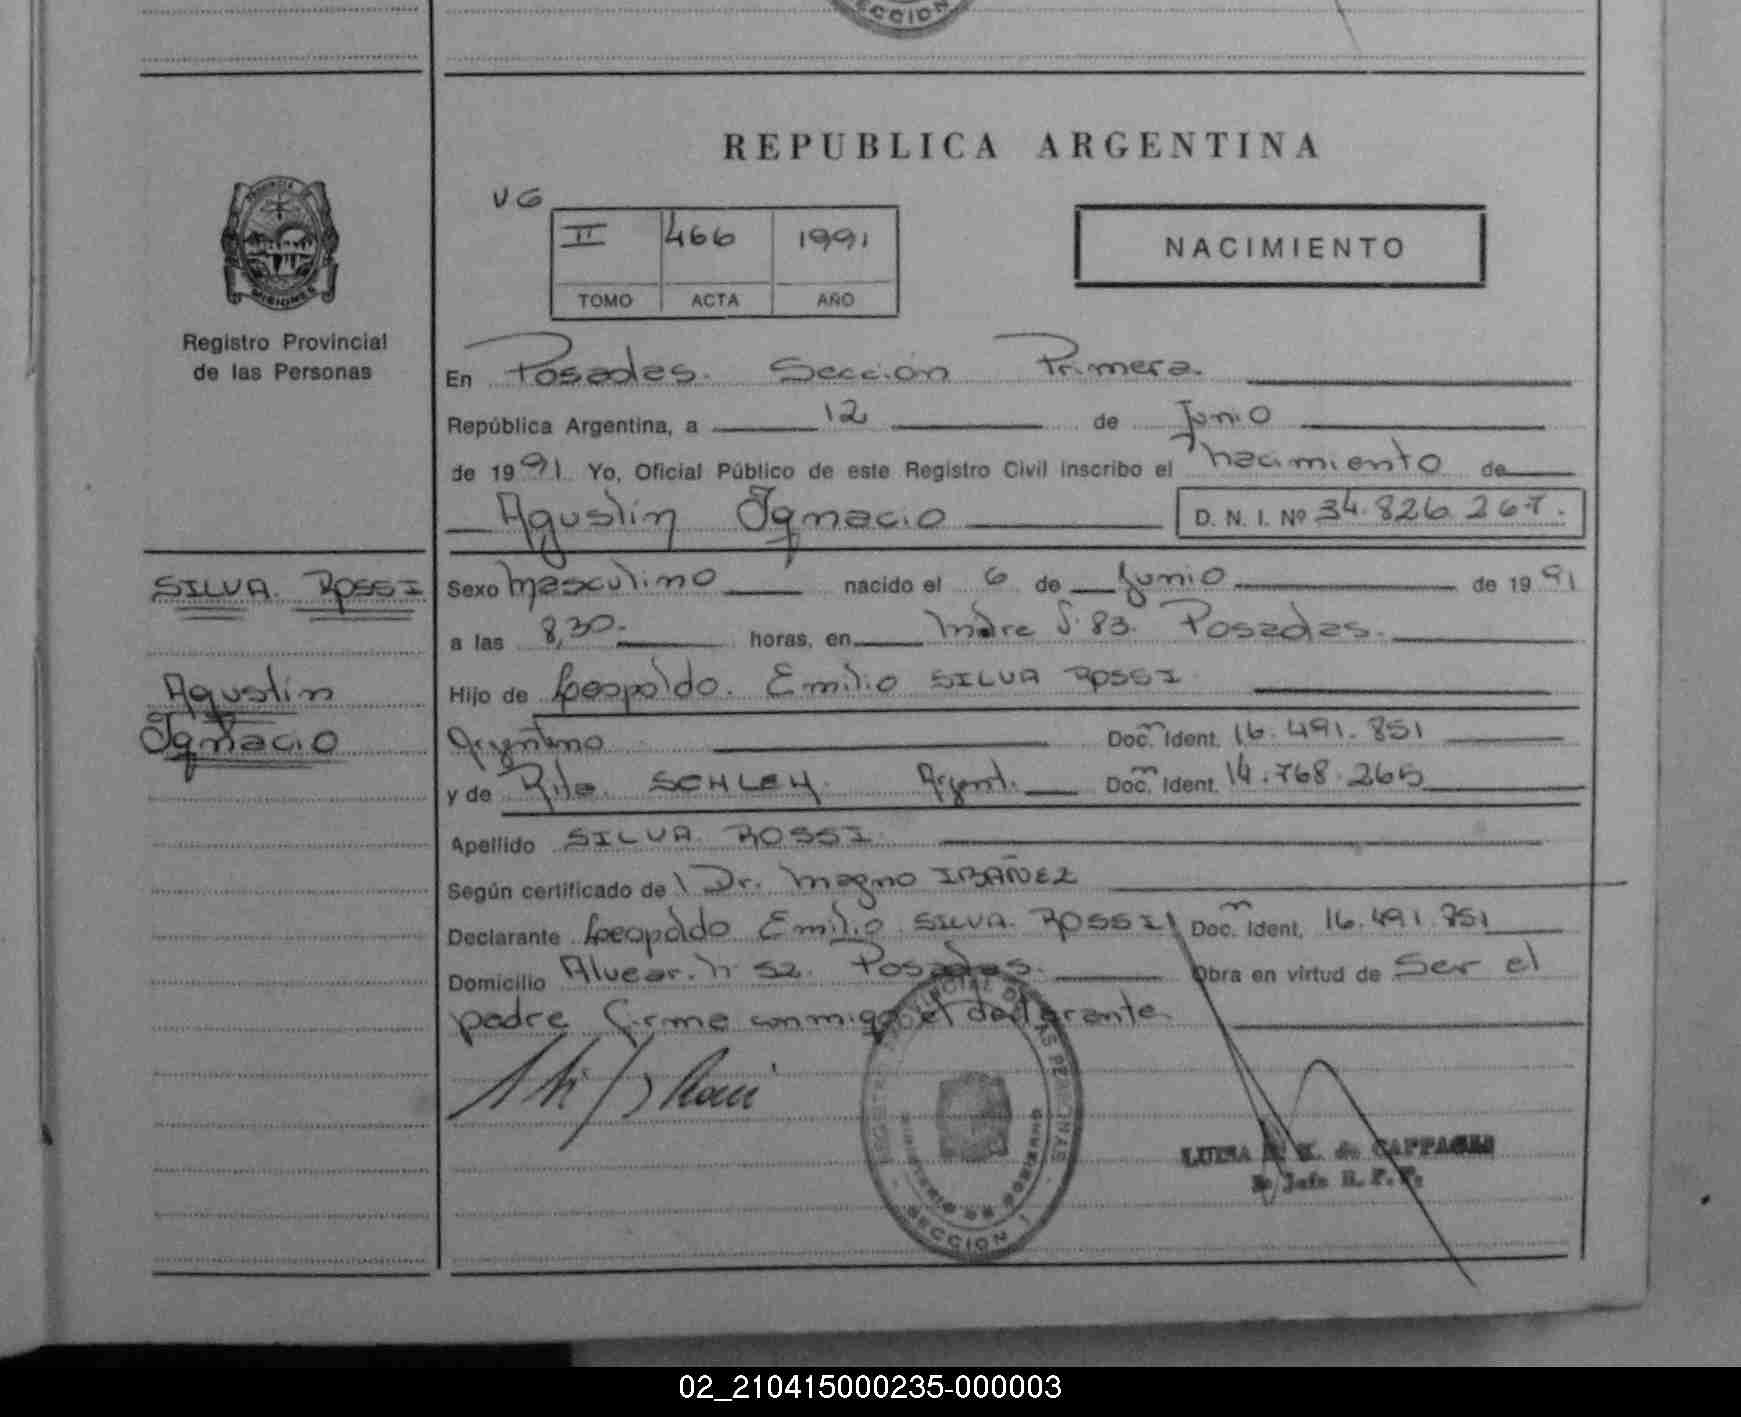 SECCION
REPUBLICA ARGENTINA
PROVINCIA
MISIONES
Registro Provincial
de las Personas
VG
II 466 1991
TOMO ACTA AÑO
NACIMIENTO
En Posadas. Sección Primera.
República Argentina, a 12 de Junio
de 1991 Yo, Oficial Público de este Registro Civil inscribo el nacimiento de
Agustín Ignacio D. N. I. Nº 34.826.267.
SILVA ROSSI
Agustín
Ignacio
Sexo masculino nacido el 6 de Junio de 1991
a las 8,30. horas, en Madre J. 83. Posadas.
Hijo de Leopoldo Emilio SILVA ROSSI
Argentino Doc. Ident. 16.491.851
y de Rita SCHLEH. Argent. Doc. Ident. 14.768.265
Apellido SILVA ROSSI
Según certificado de Dr. Magno IBAÑEZ
Declarante Leopoldo Emilio SILVA ROSSI Doc. Ident. 16.491.851
Domicilio Alvear. n 52. Posadas. Obra en virtud de Ser el
padre firma conmigo el declarante.
REGISTRO PROVINCIAL DE LAS PERSONAS
MINISTERIO DE GOBIERNO
SECCION 1
LUISA K. de CAPPAGLI
Jefe R. P. P.
02_210415000235-000003